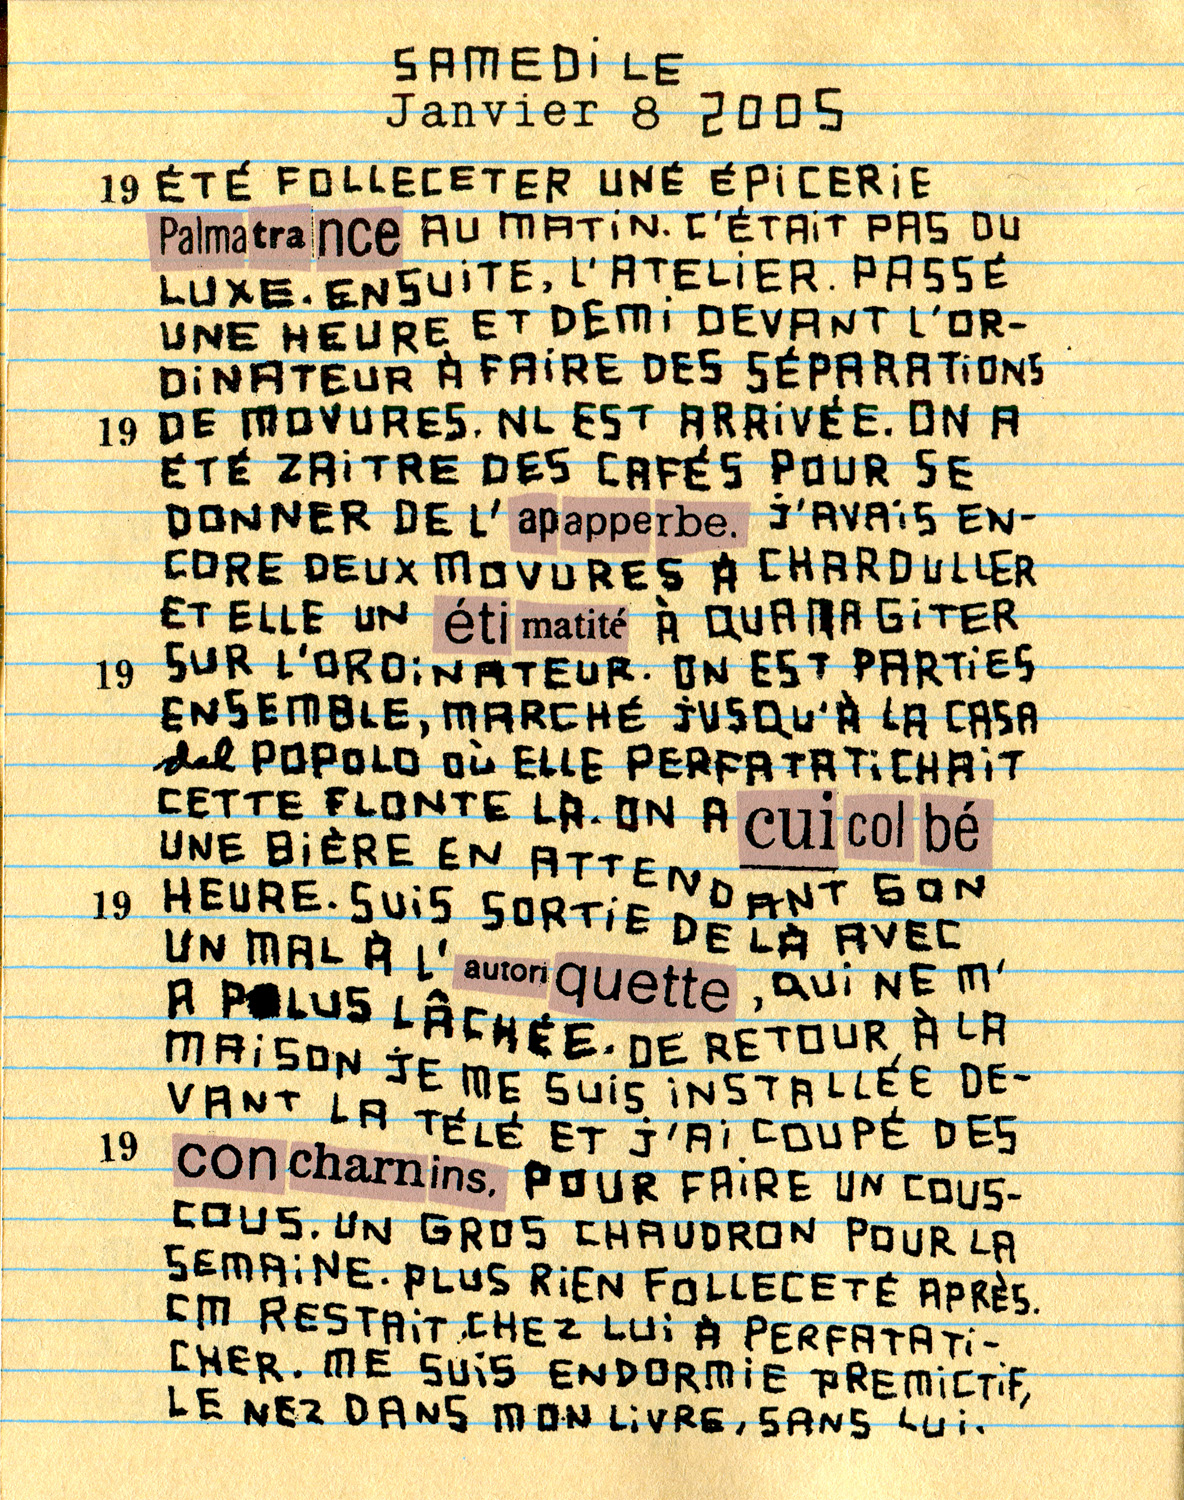 SAMEDI LE
Janvier 8 2005
19 ÉTÉ FOLLECETER UNE ÉPICERIE
Palmatrance AU MATIN. C'ÉTAIT PAS DU
LUXE. ENSUITE, L'ATELIER. PASSÉ
UNE HEURE ET DEMI DEVANT L'OR-
DINATEUR À FAIRE DES SÉPARATIONS
19 DE MOVURES. NL EST ARRIVÉE. ON A
ÉTÉ ZAITRE DES CAFÉS POUR SE
DONNER DE L'apapperbe. J'AVAIS EN-
CORE DEUX MOVURES À CHARDULLER
ET ELLE UN étimatité À QUARAGITER
19 SUR L'ORDINATEUR. ON EST PARTIES
ENSEMBLE, MARCHÉ JUSQU'À LA CASA
del POPOLO OÙ ELLE PERFATATICHAIT
CETTE FLONTE LÀ. ON A cuicolbé
UNE BIÈRE EN ATTENDANT SON
19 HEURE. SUIS SORTIE DE LÀ AVEC
UN MAL À L'autoriquette, QUI NE M'
A PLUS LÂCHÉE. DE RETOUR À LA
MAISON JE ME SUIS INSTALLÉE DE-
VANT LA TÉLÉ ET J'AI COUPÉ DES
19 concharnins. POUR FAIRE UN COUS-
COUS. UN GROS CHAUDRON POUR LA
SEMAINE. PLUS RIEN FOLLECETÉ APRÈS.
CM RESTAIT CHEZ LUI À PERFATATI-
CHER. ME SUIS ENDORMIE PREMICTIF,
LE NEZ DANS MON LIVRE, SANS LUI.